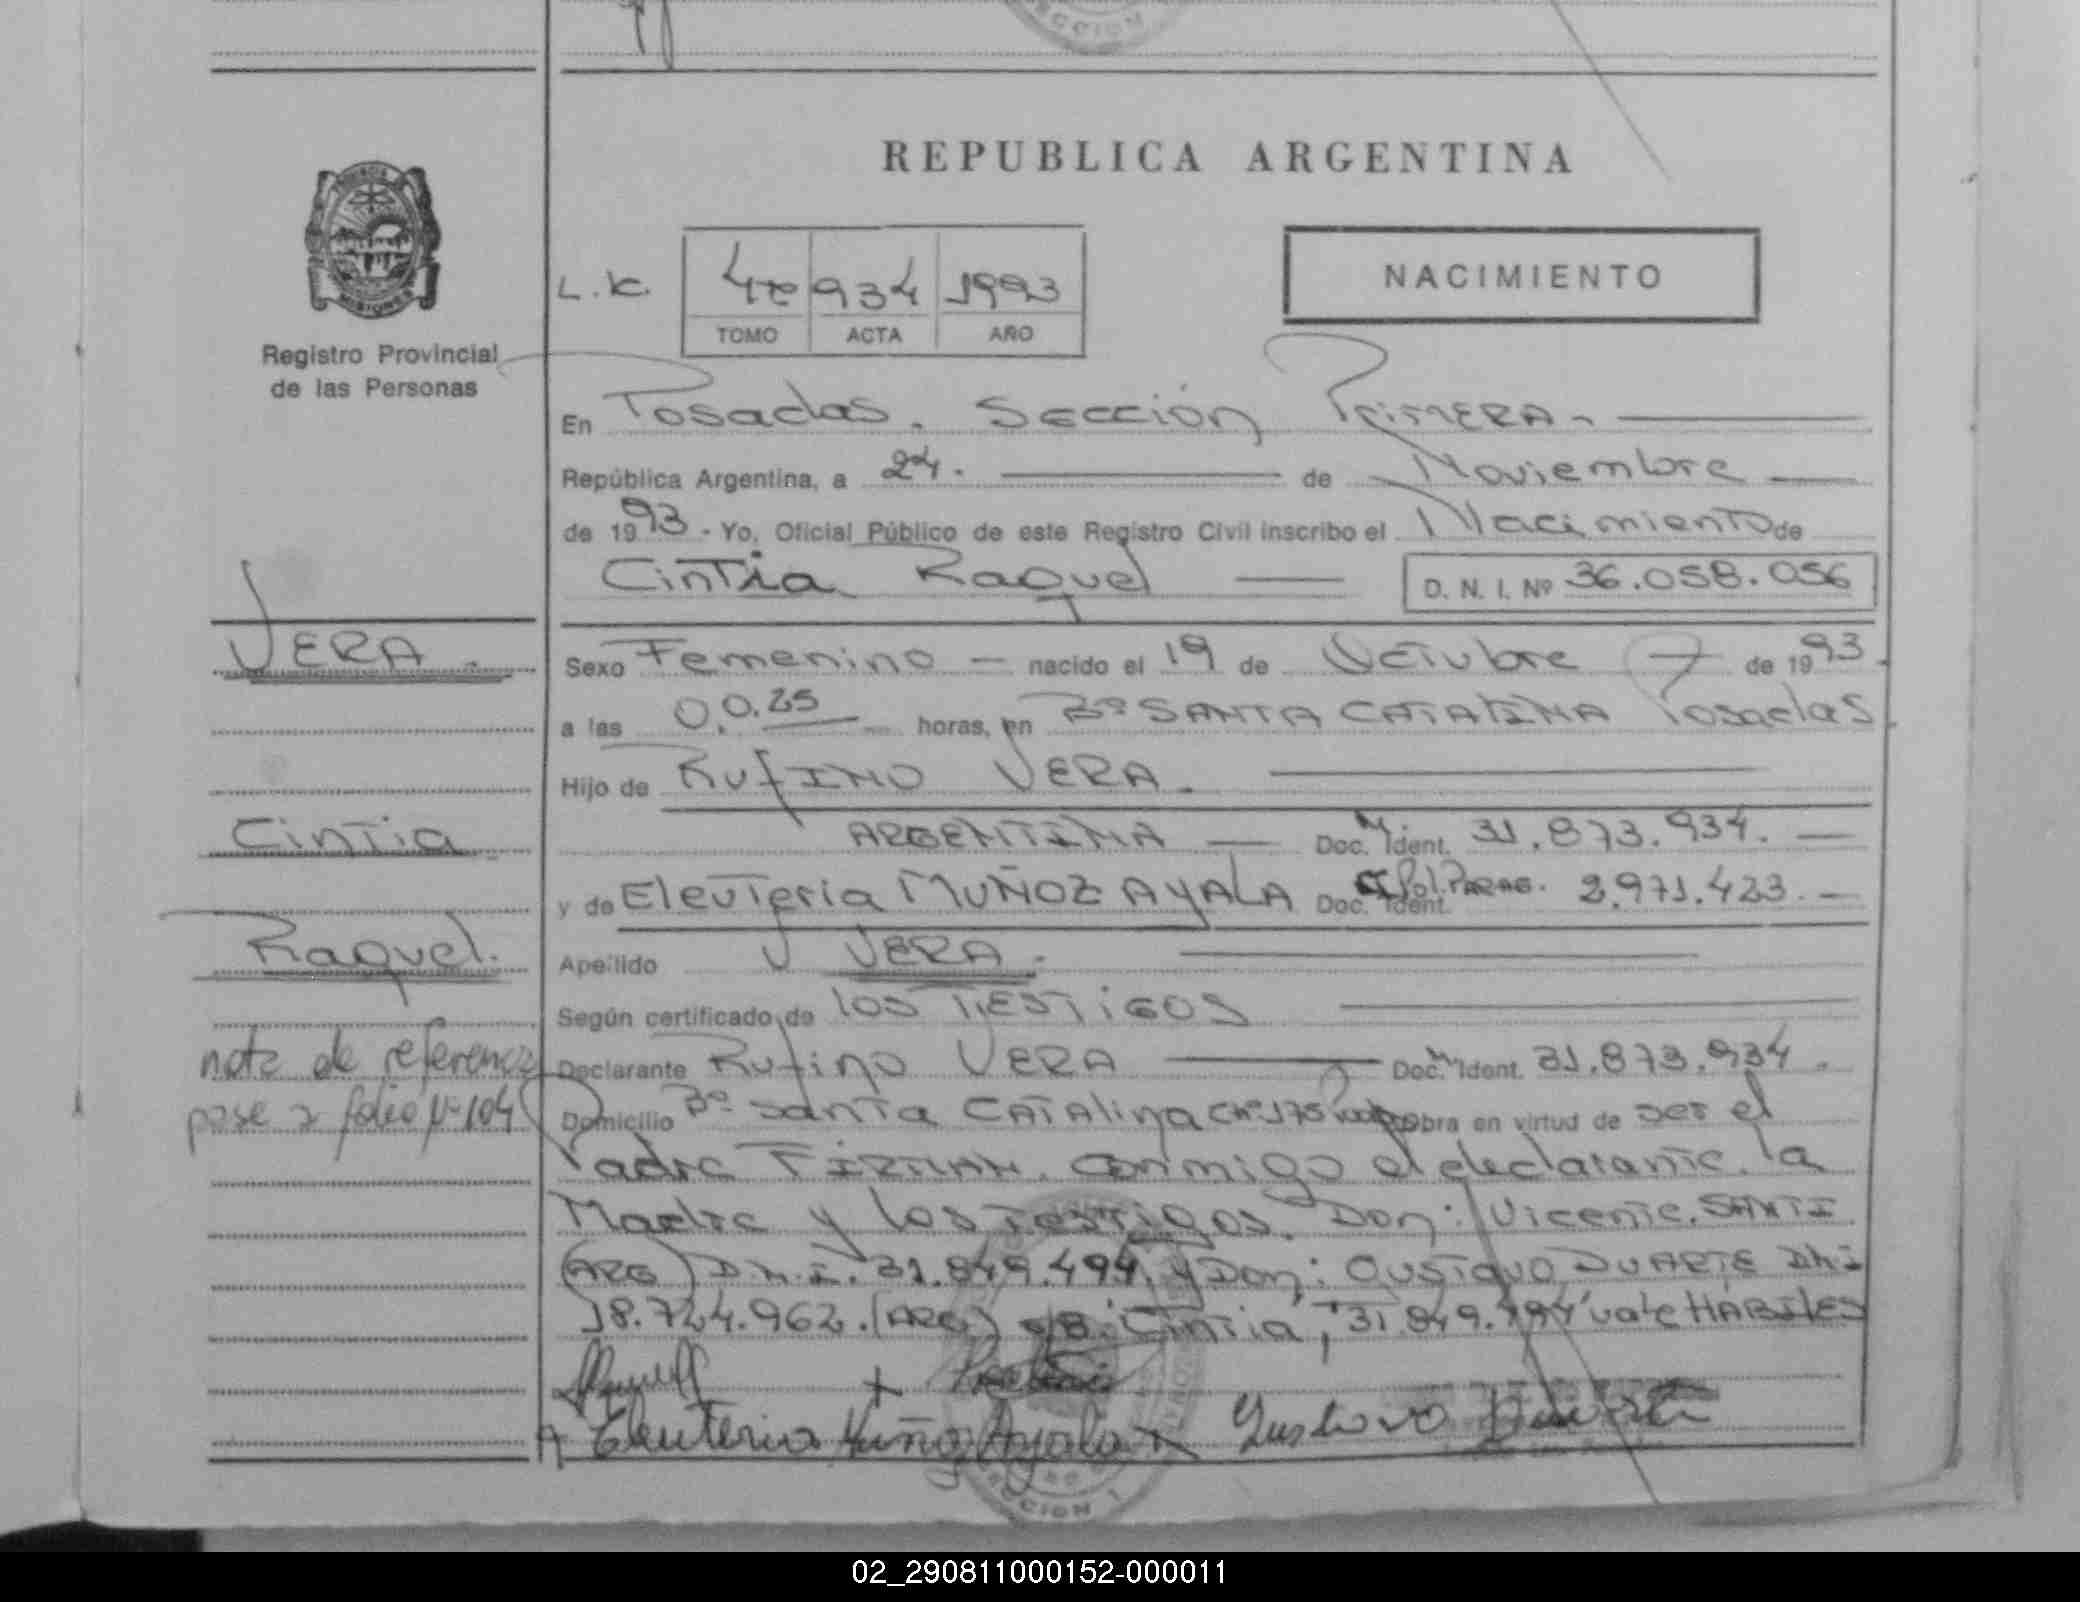 REPUBLICA ARGENTINA
PROVINCIA
MISIONES
Registro Provincial
de las Personas
L.K. 4te 934 1993
TOMO ACTA AÑO
NACIMIENTO
En Posadas. Sección Primera.
República Argentina, a 24. de Noviembre
de 1993 - Yo, Oficial Público de este Registro Civil inscribo el Nacimiento de
Cintia Raquel D. N. I. Nº 36.058.056
VERA.
Sexo Femenino nacido el 19 de Octubre de 1993.
a las 00.25 horas, en Bº SANTA CATALINA Posadas
Hijo de Rufino VERA.
Cintia
ARGENTINA Doc. M. Ident. 31.873.934.
y de Eleuteria MUÑOZ AYALA Doc. Ident. C.Pol.Parag. 2.971.423.
Raquel.
Apellido VERA.
Según certificado de los TESTIGOS
nota de referencia
pase a folio Nº 104
Declarante Rufino VERA Doc. M. Ident. 31.873.934.
Domicilio Bº Santa CATAlina CHº175 obra en virtud de ser el
Padre FIRMAN. conmigo el declarante. la
Madre y los Testigos. Don: Vicente. SANTI
(ARG) D.N.I. 31.849.494. y Don: GUSTAVO DUARTE DNI
18.724.962. (ARG) s/B. Cintia, 31.849.494 vale HÁBILES
Eleuteria Muñoz Ayala Gustavo Duarte
SECCION 1
02_290811000152-000011